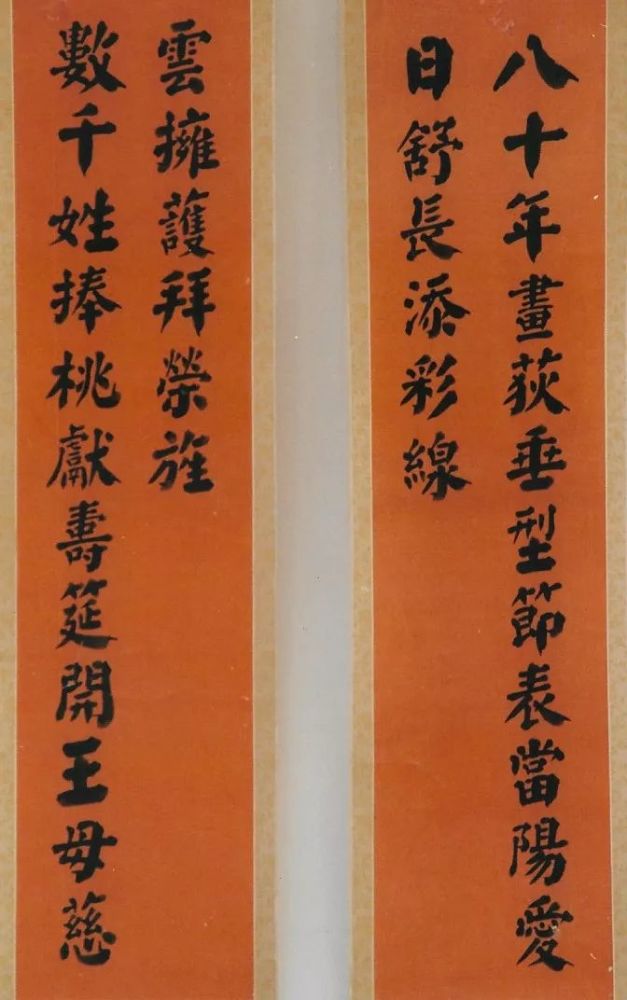 八十年畫荻垂型節表當陽愛
日舒長添彩線
數千姓捧桃獻壽筵開王母慈
雲擁護拜榮旌